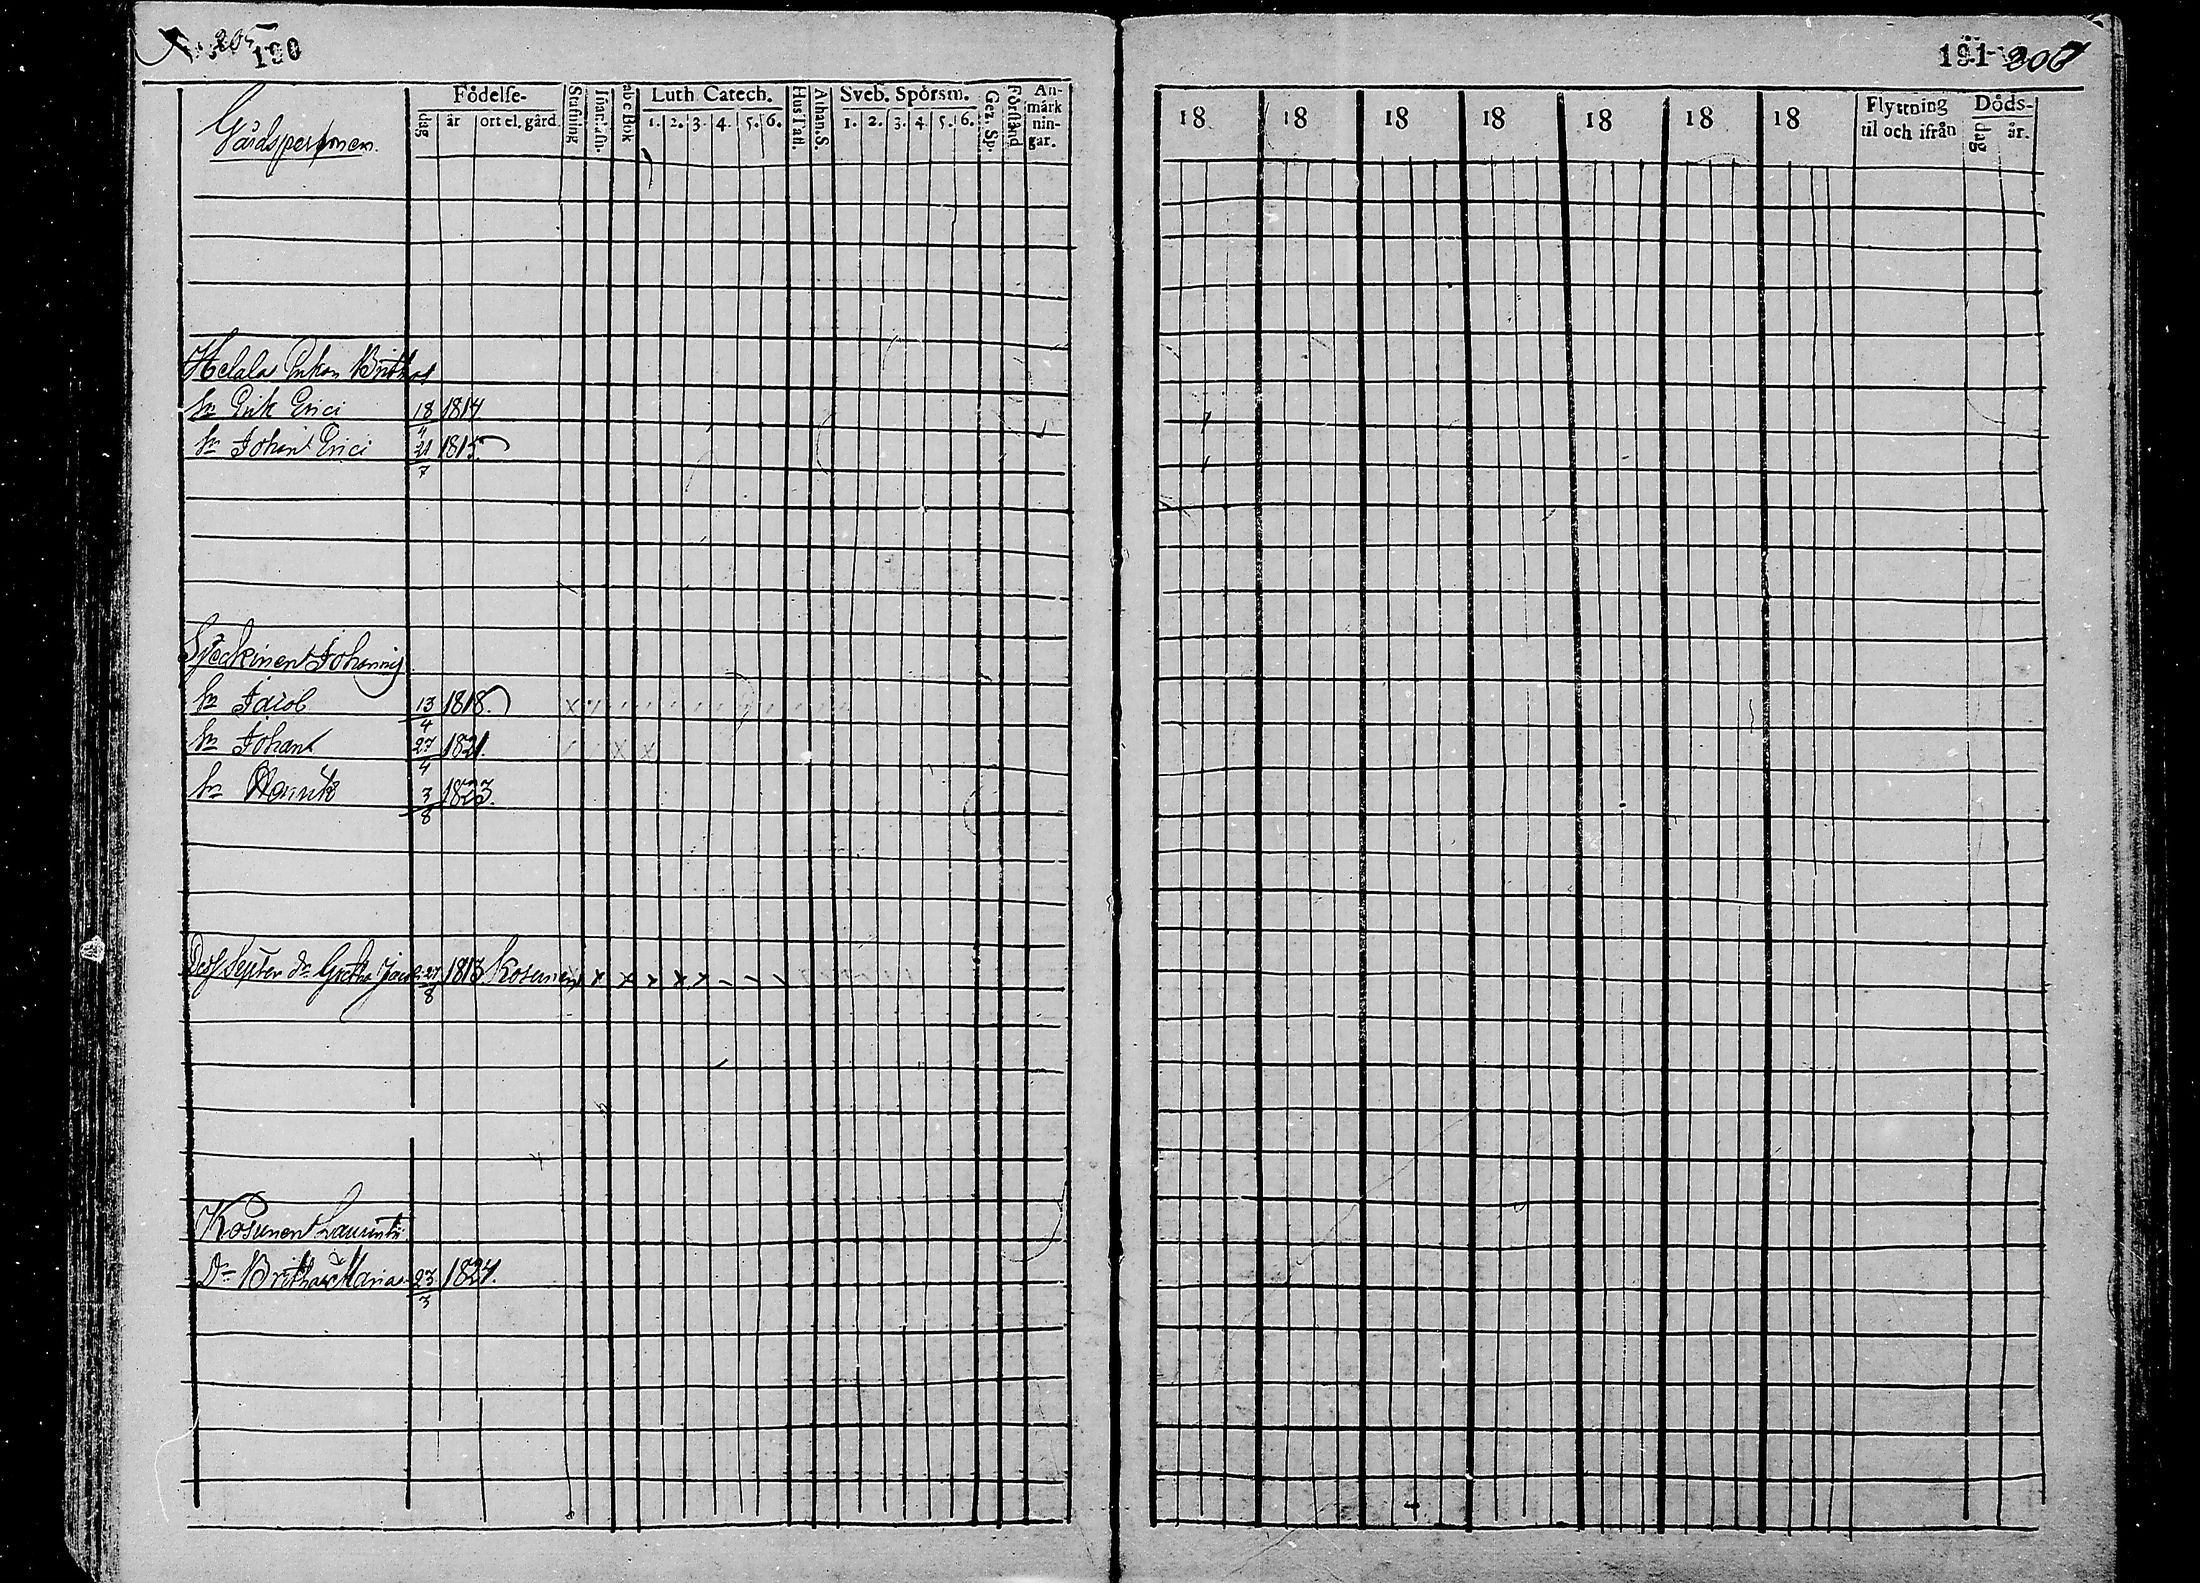 190
191
Gårdspersoner.
Födelse-
dag år ort el. gård
Stafning
abc Bok
Luth Catech.
1. 2. 3. 4. 5. 6.
Hus Tafl.
Athan. S.
Sveb. Spörsm.
1. 2. 3. 4. 5. 6.
Gez. Sp.
Förstånd
An-
märk
nin-
gar.
18 18 18 18 18 18 18
Flyttning
til och ifrån
Döds-
dag år.
Enkan Britha
Sn Erik Erici 18/4 1814
Sn Johan Erici 21/7 1815
Johannis
Sn Jacob 13/4 1818.
Sn Johan 27/4 1821.
Sn Henrik 3/8 1823.
Dess Dr Gretha 27/8 1813 Kosunen
Kosunen Laurentii
Dr Britha Maria 23/3 1824.